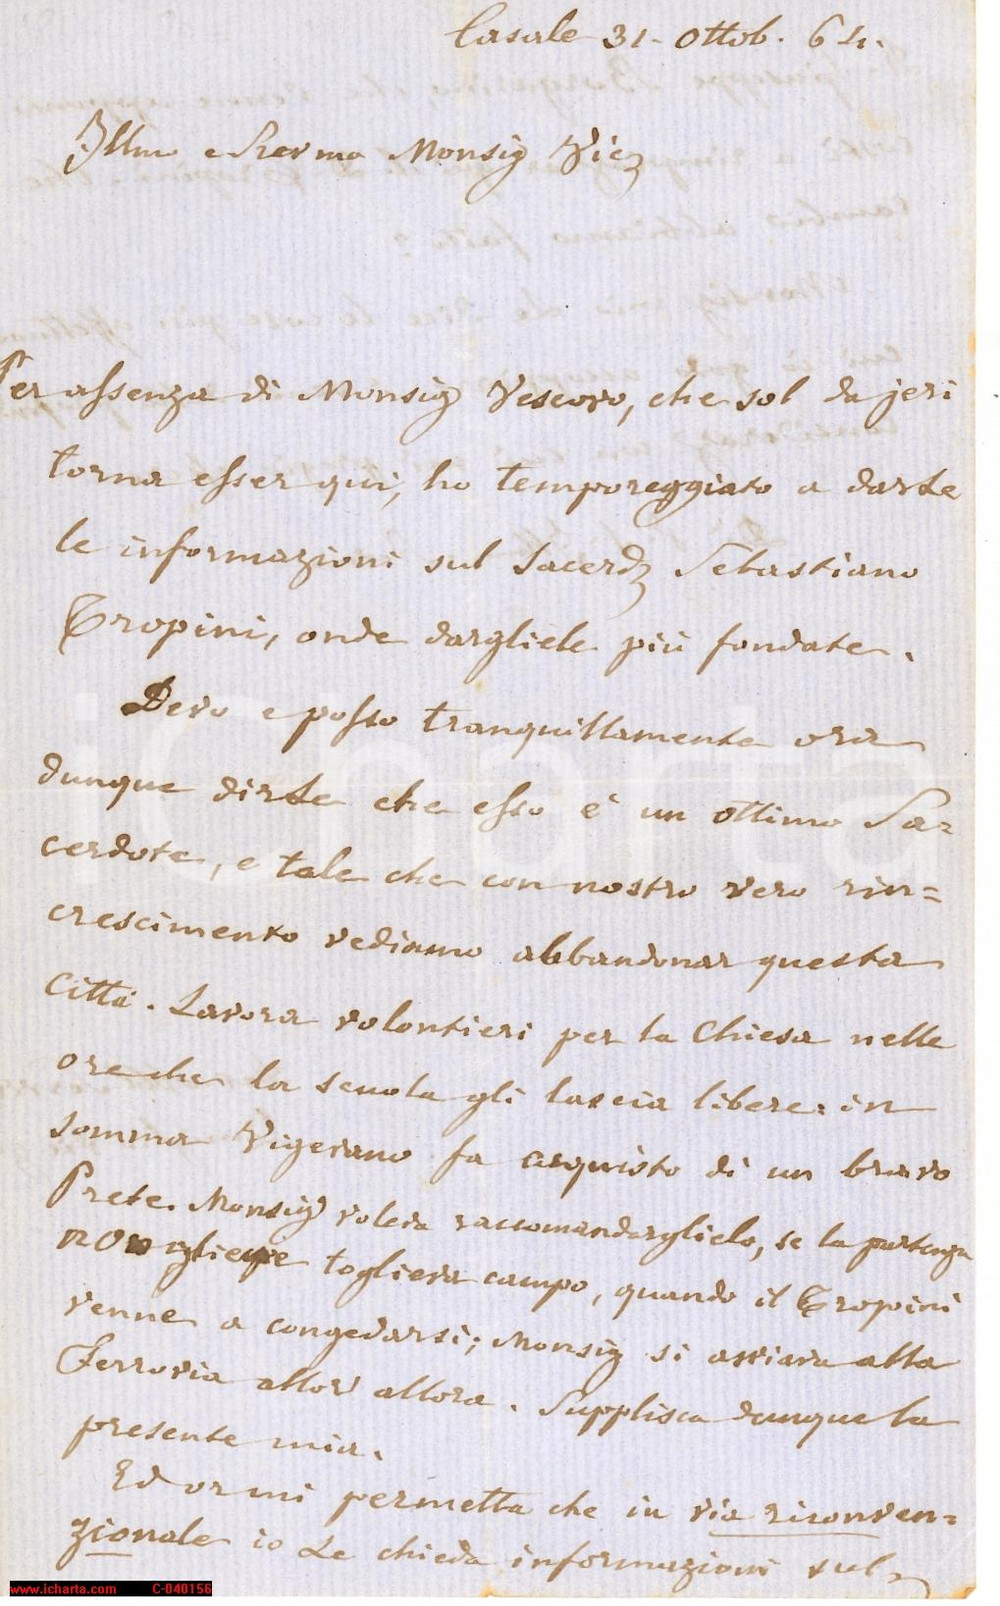 Casale 31. Ottob. 64.
Illmo e Revmo Monsig Vic
Per assenza di Monsig Vescovo, che sol da jeri
torna esser qui, ho temporeggiato a darLe
le informazioni sul Sacerd Sebastiano
Tropini, onde dargliele più fondate.
Devo e posso tranquillamente ora
dunque dirLe che esso è un ottimo Sa-
cerdote, e tale che con nostro vero rin=
crescimento vediamo abbandonar questa
Città. Lavora volontieri per la Chiesa nelle
ore che la scuola gli lascia libere: in
somma Vigevano fa acquisto di un bravo
Prete. Monsig voleva raccomandarglielo, se la partenza
non gliene toglieva campo, quando il Tropini
venne a congedarsi; Monsig si avviava alla
Ferrovia allor allora. Supplisca dunque la
presente mia.
Ed or mi permetta che in via riconven=
zionale io Le chieda informazioni sul
iCharta
www.icharta.com C-040156